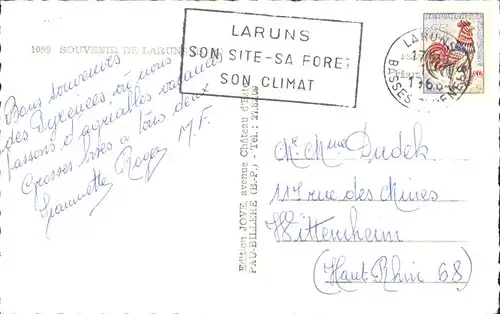 1099 SOUVENIR DE LARUNS
LARUNS
SON SITE-SA FORET
SON CLIMAT
LARUNS
BASSES PYRENEES
Bons souvenirs
des Pyrénées, où nous
passons d'agréables vacances
Grosses bises à tous deux
Jeannette Roger M.F.
Edition JOVE, avenue Château d'Este
PAU-BILLERE (B.-P.) - Tel.:
Mr. Mme Dudek
117 rue des Mines
Wittenheim
(Haut-Rhin 68)